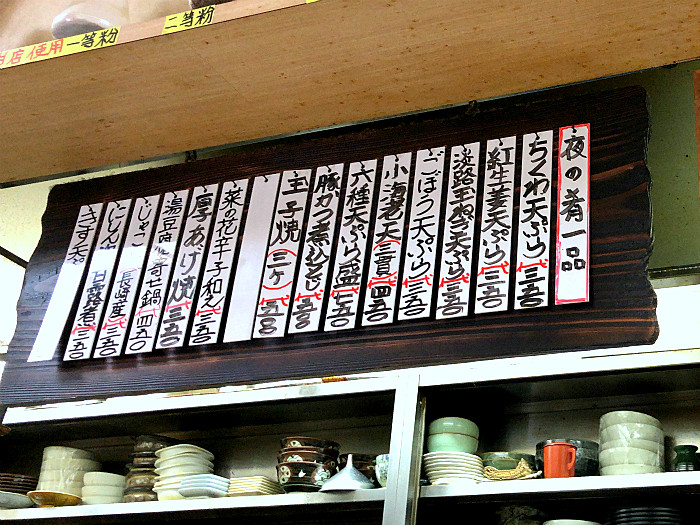 当店使用一等粉
二等粉
夜の肴一品
ちくわ天ぷら 代三五〇
紅生姜天ぷら 代三五〇
淡路玉ねぎ天ぷら 代三五〇
ごぼう天ぷら 代三五〇
小海老天(三貫) 代四五〇
六種天ぷら盛 代七五〇
豚かつ煮込みとじ
玉子焼(三ケ) 代五五〇
菜の花辛子和え 代三五〇
厚あげ焼 代三五〇
湯豆腐 代三五〇
じゃこ 寄せ鍋 代四五〇
にしん 長崎産 代三五〇
きす天ぷら 甘露煮 代三五〇